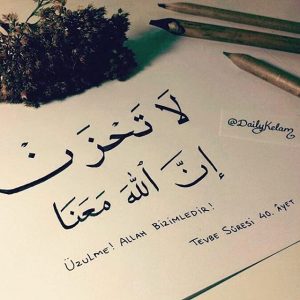 لَا تَحْزَنْ
إِنَّ ٱللَّهَ مَعَنَا
@DailyKelam
Üzülme! Allah Bizimledir!
Tevbe Sûresi 40. Âyet